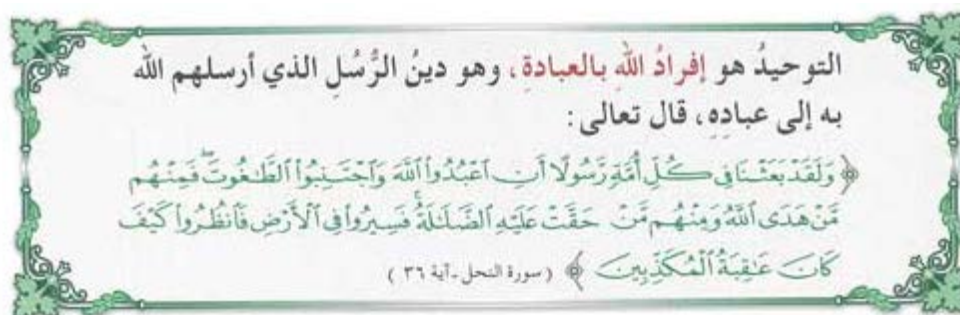 التوحيدُ هو إفرادُ اللهِ بالعبادةِ، وهو دينُ الرُّسُلِ الذي أرسلهم الله
به إلى عبادِهِ، قال تعالى:
﴿ وَلَقَدْ بَعَثْنَا فِي كُلِّ أُمَّةٍ رَّسُولًا أَنِ اعْبُدُوا اللَّهَ وَاجْتَنِبُوا الطَّاغُوتَ فَمِنْهُم
مَّنْ هَدَى اللَّهُ وَمِنْهُم مَّنْ حَقَّتْ عَلَيْهِ الضَّلَالَةُ فَسِيرُوا فِي الْأَرْضِ فَانظُرُوا كَيْفَ
كَانَ عَاقِبَةُ الْمُكَذِّبِينَ ﴾ ( سورة النحل ـ آية ٣٦ )